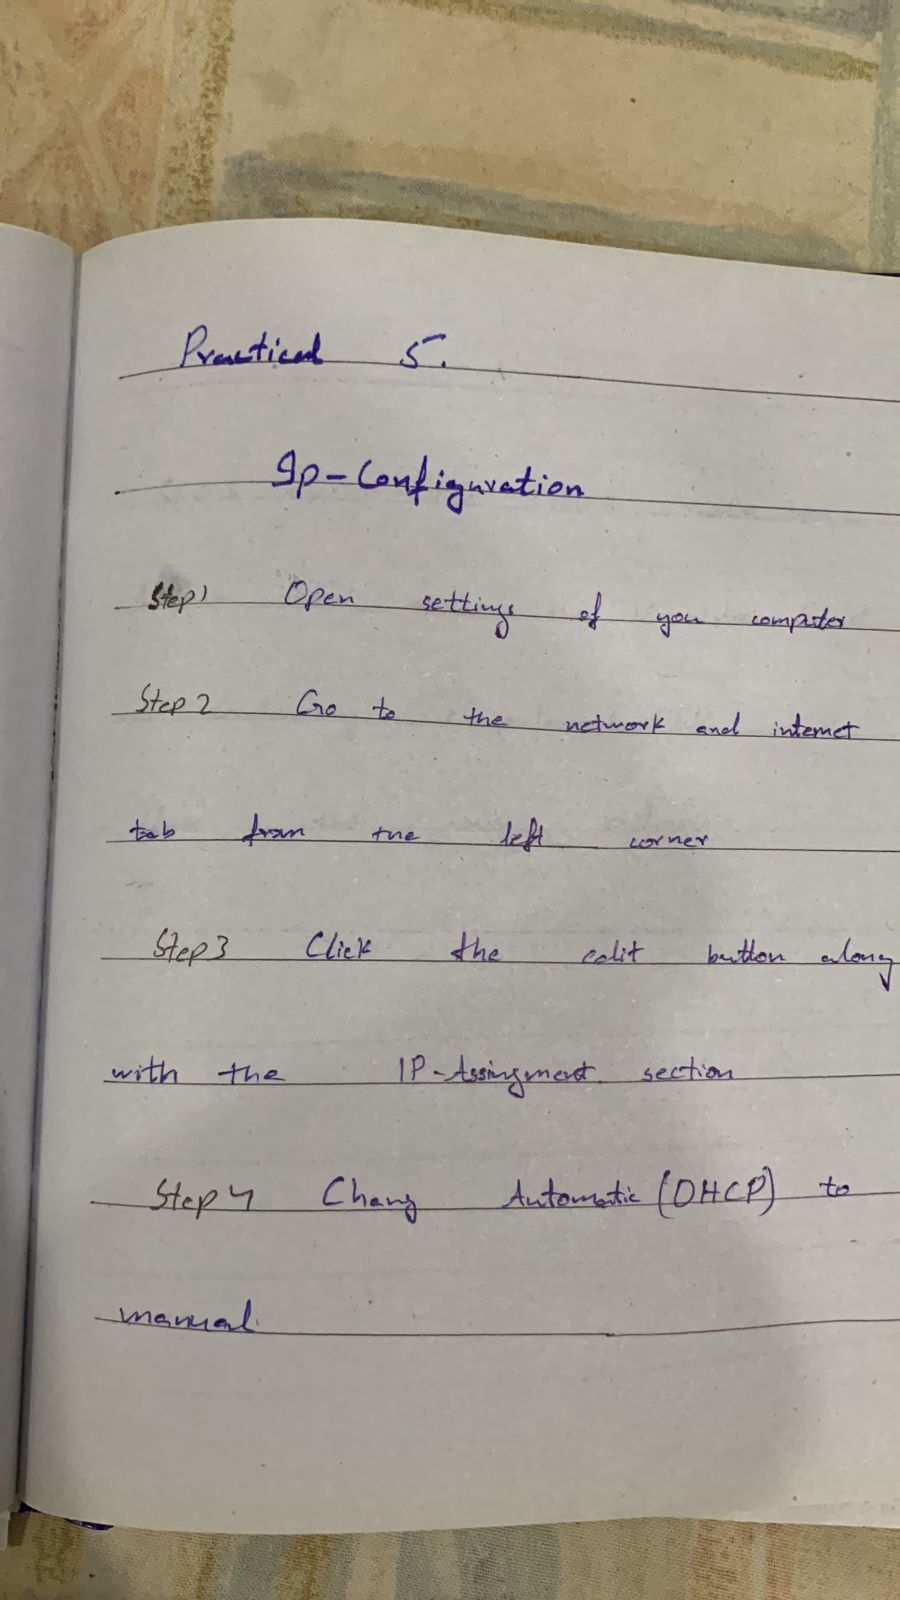 Practical 5.
Ip-Configuration
Step1 Open settings of you computer
Step 2 Go to the network and internet
tab from the left corner
Step 3 Click the edit button along
with the IP-Assingment section
Step 4 Chang Automatic (DHCP) to
manual.